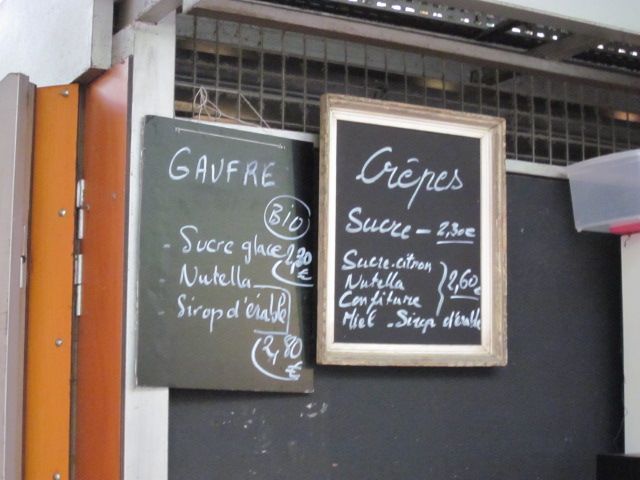 GAUFRE
BIO
- Sucre glace 2,20 €
Nutella
- Sirop d'érable
2,80 €
Crêpes
Sucre - 2,30€
Sucre-citron
Nutella
Confiture
2,60€
Miel - Sirop d'érable